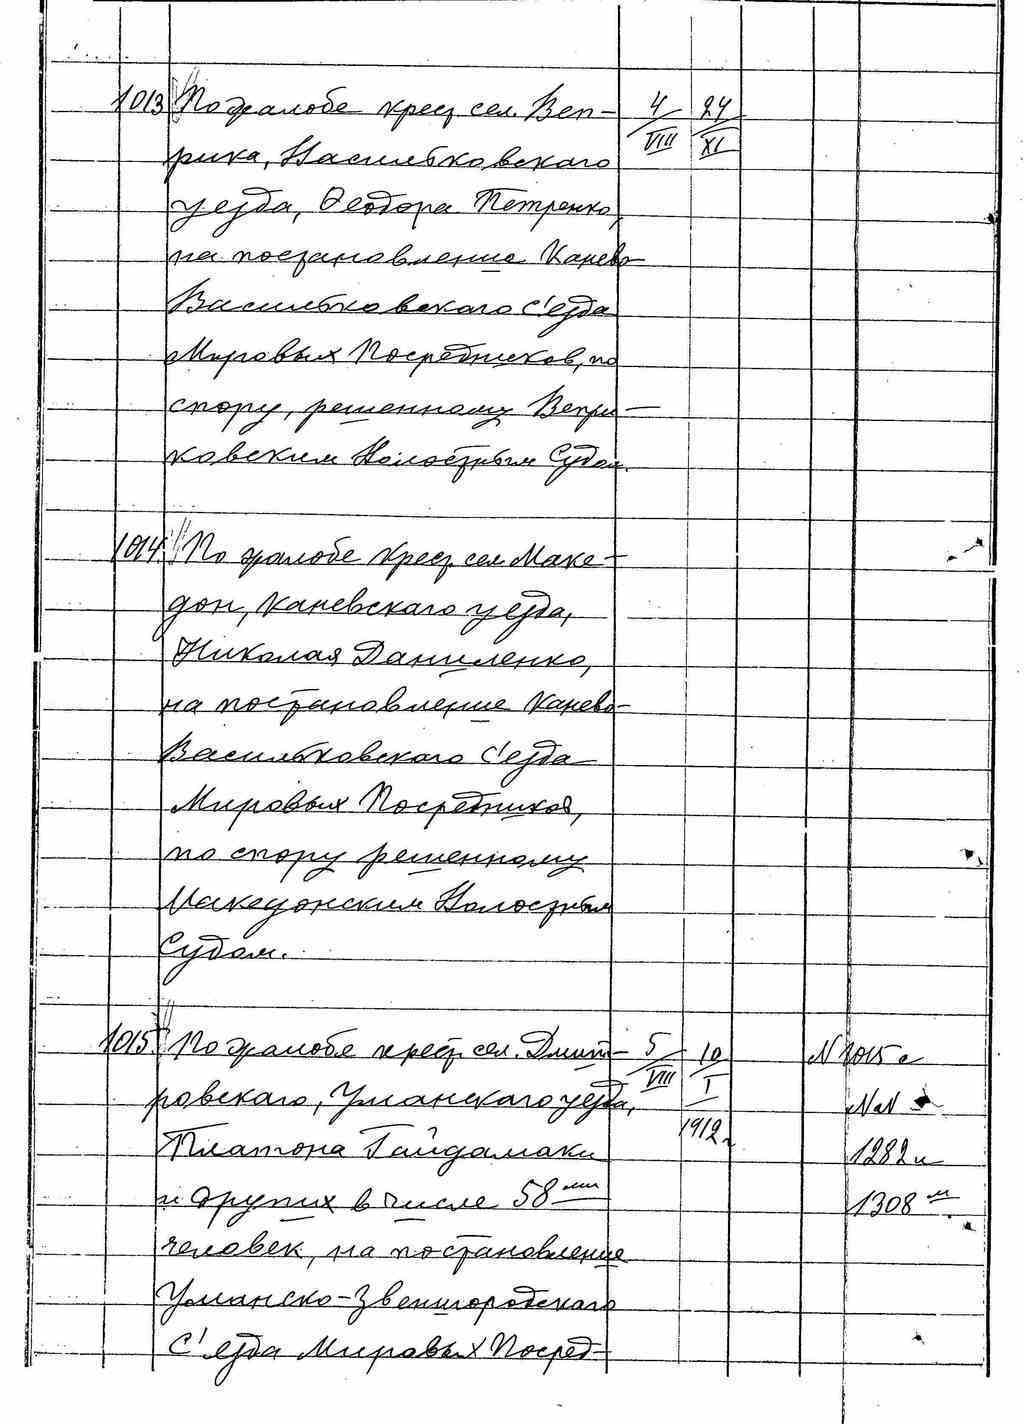 1013 По жалобе крест. сел. Веп- 4 24
рика, Васильковского VIII XI
уезда, Феодора Петренко,
на постановление Канево-
Васильковского с'езда
Мировых Посредников, по
спору, решенному Вепри-
ковским Волостным Судом.
1014. По жалобе крест. сел. Маке-
дон, Каневского уезда,
Николая Даниленко,
на постановление Канево-
Васильковского С'езда
Мировых Посредников,
по спору решенному
Македонским Волостным
Судом.
1015. По жалобе крест. сел. Дмит- 5 10 N 1015 с
ровского, Уманского уезда, VIII I NaN
Платона Гайдамаки 1912 г. 1282 и
и других в числе 58 ми 1308 м
человек, на постановление
Уманско-Звенигородского
С'езда Мировых Посред-